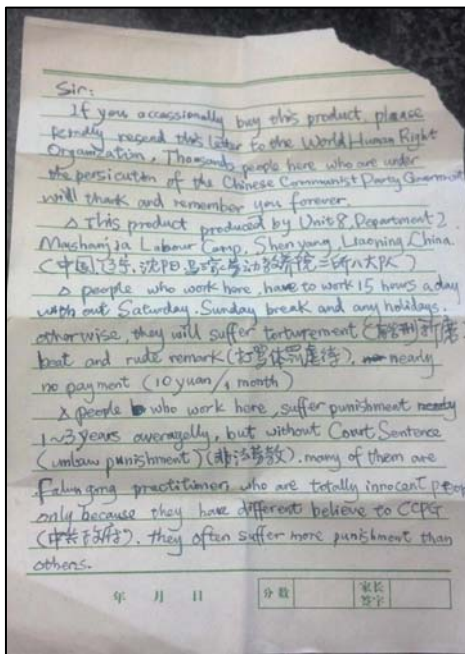 Sir:
If you occassionally buy this product, please
kindly resend this letter to the World Human Right
Organization. Thousands people here who are under
the persicution of the Chinese Communist Party Government
will thank and remember you forever.
△ This product produced by Unit 8, Department 2,
Mashanjia Labour Camp, Shenyang, Liaoning, China.
(中国,辽宁,沈阳,马三家劳动教养院二所八大队)
△ people who work here, have to work 15 hours a day
with out Saturday, Sunday break and any holidays.
otherwise, they will suffer torturement (折磨),
beat and rude remark (打骂体罚虐待), nearly
no payment (10 yuan/1 month)
△ people who work here, suffer punishment
1~3 years averagelly, but without Court Sentence
(unlaw punishment) (非法劳教). many of them are
Falun gong practitioner, who are totally innocent people
only because they have different believe to CCPG
(中共政府). they often suffer more punishment than
others.
年 月 日 分数 家长签字